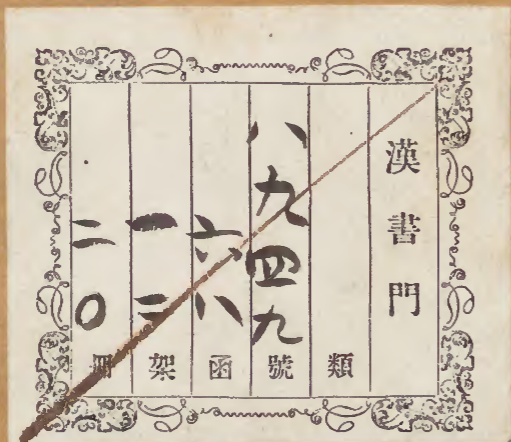 漢書門
類
八九四九號
六八函
一二架
二〇冊